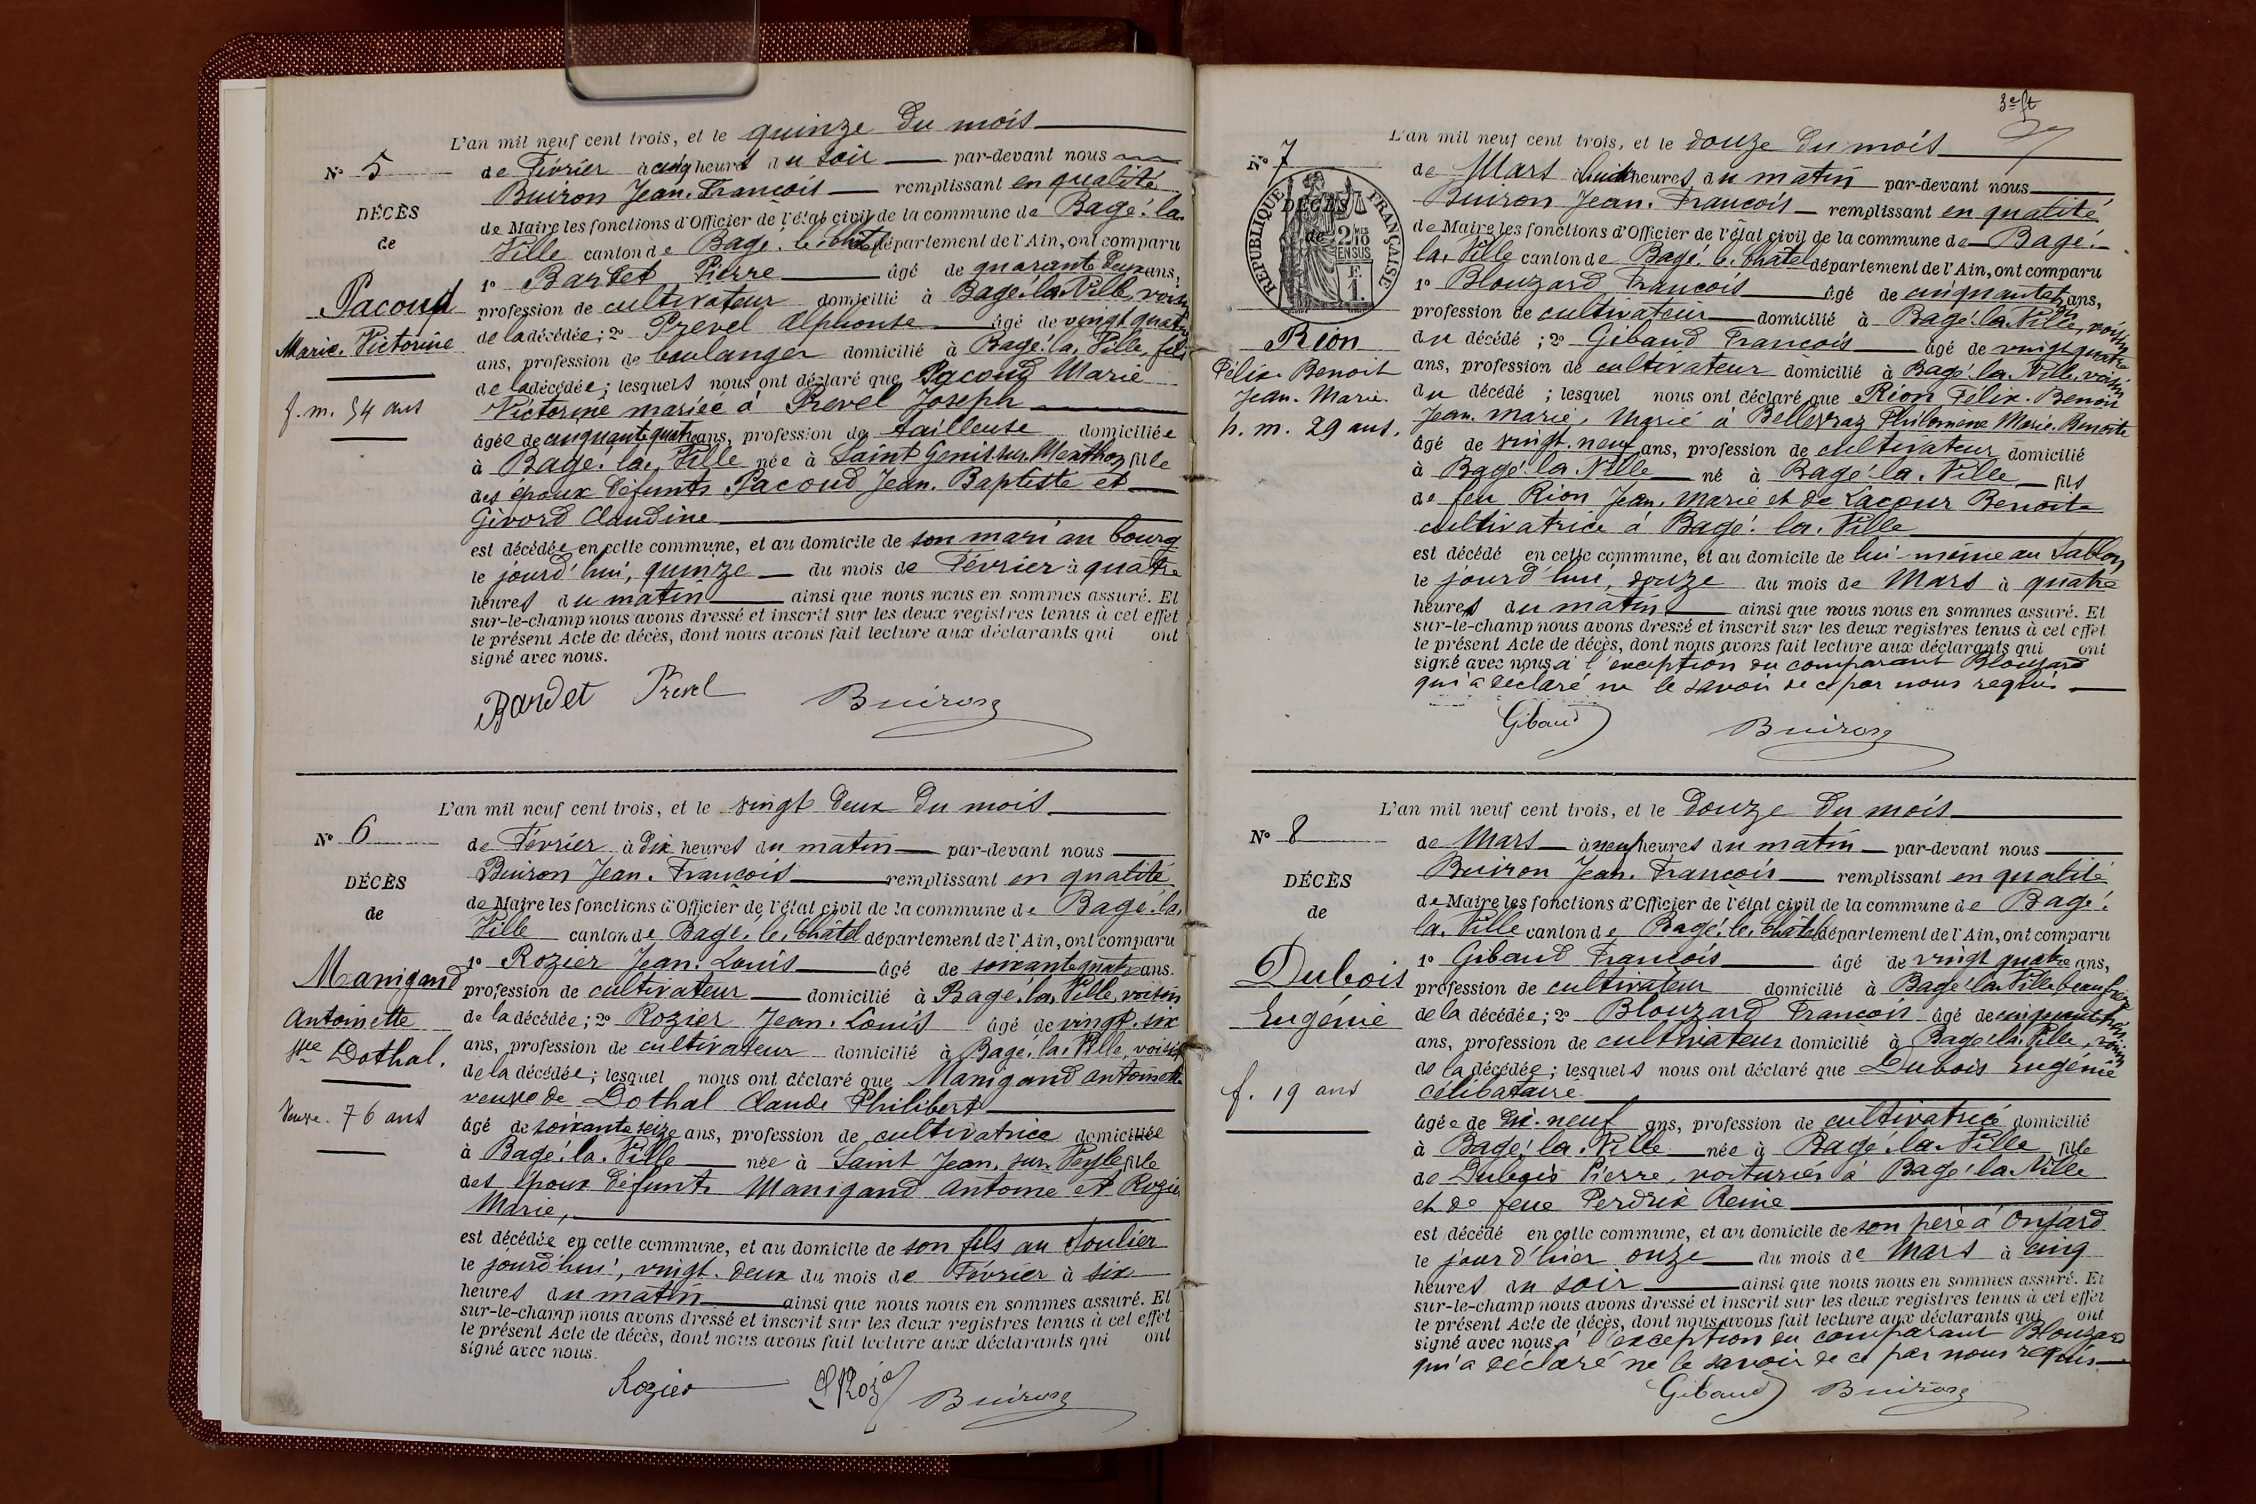 L'an mil neuf cent trois, et le quinze du mois
N° 5
de Février à cinq heures du soir par-devant nous
Buiron Jean-François remplissant en qualité
DÉCÈS
de Maire les fonctions d'Officier de l'état civil de la commune de Bagé-la-
de
Ville canton de Bagé-le-Châtel département de l'Ain, ont comparu
1° Bardet Pierre âgé de quarante deux ans,
Pacoud
profession de cultivateur domicilié à Bagé-la-Ville, voisin
Marie-Victorine
de la décédée; 2° Prevel Alphonse âgé de vingt quatre
ans, profession de boulanger domicilié à Bagé-la-Ville, fils
de la décédée; lesquels nous ont déclaré que Pacoud Marie
f. m. 54 ans
Victorine mariée à Prevel Joseph
âgée de cinquante quatre ans, profession de tailleuse domiciliée
à Bagé-la-Ville née à Saint Genis-sur-Menthon fille
des époux défunts Pacoud Jean-Baptiste et
Givord Claudine
est décédée en cette commune, et au domicile de son mari au bourg
le jourd'hui, quinze du mois de Février à quatre
heures du matin ainsi que nous nous en sommes assuré. Et
sur-le-champ nous avons dressé et inscrit sur les deux registres tenus à cet effet
le présent Acte de décès, dont nous avons fait lecture aux déclarants qui ont
signé avec nous.
Bardet Prevel Buiron
L'an mil neuf cent trois, et le vingt deux du mois
N° 6
de Février à dix heures du matin par-devant nous
Buiron Jean-François remplissant en qualité
DÉCÈS
de Maire les fonctions d'Officier de l'état civil de la commune de Bagé-la-
de
Ville canton de Bagé-le-Châtel département de l'Ain, ont comparu
1° Rozier Jean-Louis âgé de soixante quatre ans.
Manigand
profession de cultivateur domicilié à Bagé-la-Ville, voisin
Antoinette
de la décédée; 2° Rozier Jean-Louis âgé de vingt-six
Vve Dothal.
ans, profession de cultivateur domicilié à Bagé-la-Ville, voisin
de la décédée; lesquel nous ont déclaré que Manigand Antoinette
veuve de Dothal Claude Philibert
Veuve. 76 ans
âgé de soixante seize ans, profession de cultivatrice domiciliée
à Bagé-la-Ville née à Saint Jean-sur-Veyle fille
des époux défunts Manigand Antoine et Rozier
Marie,
est décédée en cette commune, et au domicile de son fils au Soulier
le jourd'hui, vingt-deux du mois de Février à six
heures du matin ainsi que nous nous en sommes assuré. Et
sur-le-champ nous avons dressé et inscrit sur les deux registres tenus à cet effet
le présent Acte de décès, dont nous avons fait lecture aux déclarants qui ont
signé avec nous.
Rozier Buiron
3e ft
L'an mil neuf cent trois, et le douze du mois
N° 7
de Mars à huit heures du matin par-devant nous
Buiron Jean-François remplissant en qualité
DÉCÈS
de Maire les fonctions d'Officier de l'état civil de la commune de Bagé-
de
la-Ville canton de Bagé-le-Châtel département de l'Ain, ont comparu
RÉPUBLIQUE FRANÇAISE
2 10 EN SUS
F. 1.
1° Blouzard François âgé de cinquante trois ans,
profession de cultivateur domicilié à Bagé-la-Ville, voisin
Rion
du décédé; 2° Gibaud François âgé de vingt quatre
Félix-Benoit
ans, profession de cultivateur domicilié à Bagé-la-Ville, voisin
Jean-Marie
du décédé; lesquel nous ont déclaré que Rion Félix-Benoit
h. m. 29 ans.
Jean-Marie, marié à Bellevraz Philomène Marie-Benoite
âgé de vingt-neuf ans, profession de cultivateur domicilié
à Bagé-la-Ville né à Bagé-la-Ville fils
de feu Rion Jean-Marie et de Lacour Benoite
cultivatrice à Bagé-la-Ville
est décédé en cette commune, et au domicile de lui-même au Sablon
le jourd'hui, douze du mois de Mars à quatre
heures du matin ainsi que nous nous en sommes assuré. Et
sur-le-champ nous avons dressé et inscrit sur les deux registres tenus à cet effet
le présent Acte de décès, dont nous avons fait lecture aux déclarants qui ont
signé avec nous à l'exception du comparant Blouzard
qui a déclaré ne le savoir de ce par nous requis
Gibaud Buiron
L'an mil neuf cent trois, et le douze du mois
N° 8
de Mars à neuf heures du matin par-devant nous
Buiron Jean-François remplissant en qualité
DÉCÈS
de Maire les fonctions d'Officier de l'état civil de la commune de Bagé-
de
la-Ville canton de Bagé-le-Châtel département de l'Ain, ont comparu
1° Gibaud François âgé de vingt quatre ans,
Dubois
profession de cultivateur domicilié à Bagé-la-Ville beau frère
Eugénie
de la décédée; 2° Blouzard François âgé de cinquante trois
ans, profession de cultivateur domicilié à Bagé-la-Ville, voisin
de la décédée; lesquels nous ont déclaré que Dubois Eugénie
f. 19 ans
célibataire
âgée de dix-neuf ans, profession de cultivatrice domicilié
à Bagé-la-Ville née à Bagé-la-Ville fille
de Dubois Pierre, voiturier à Bagé-la-Ville
et de feue Perdrix Reine
est décédé en cette commune, et au domicile de son père à Onjard
le jour d'hier onze du mois de Mars à cinq
heures du soir ainsi que nous nous en sommes assuré. Et
sur-le-champ nous avons dressé et inscrit sur les deux registres tenus à cet effet
le présent Acte de décès, dont nous avons fait lecture aux déclarants qui ont
signé avec nous à l'exception du comparant Blouzard
qui a déclaré ne le savoir de ce par nous requis
Gibaud Buiron